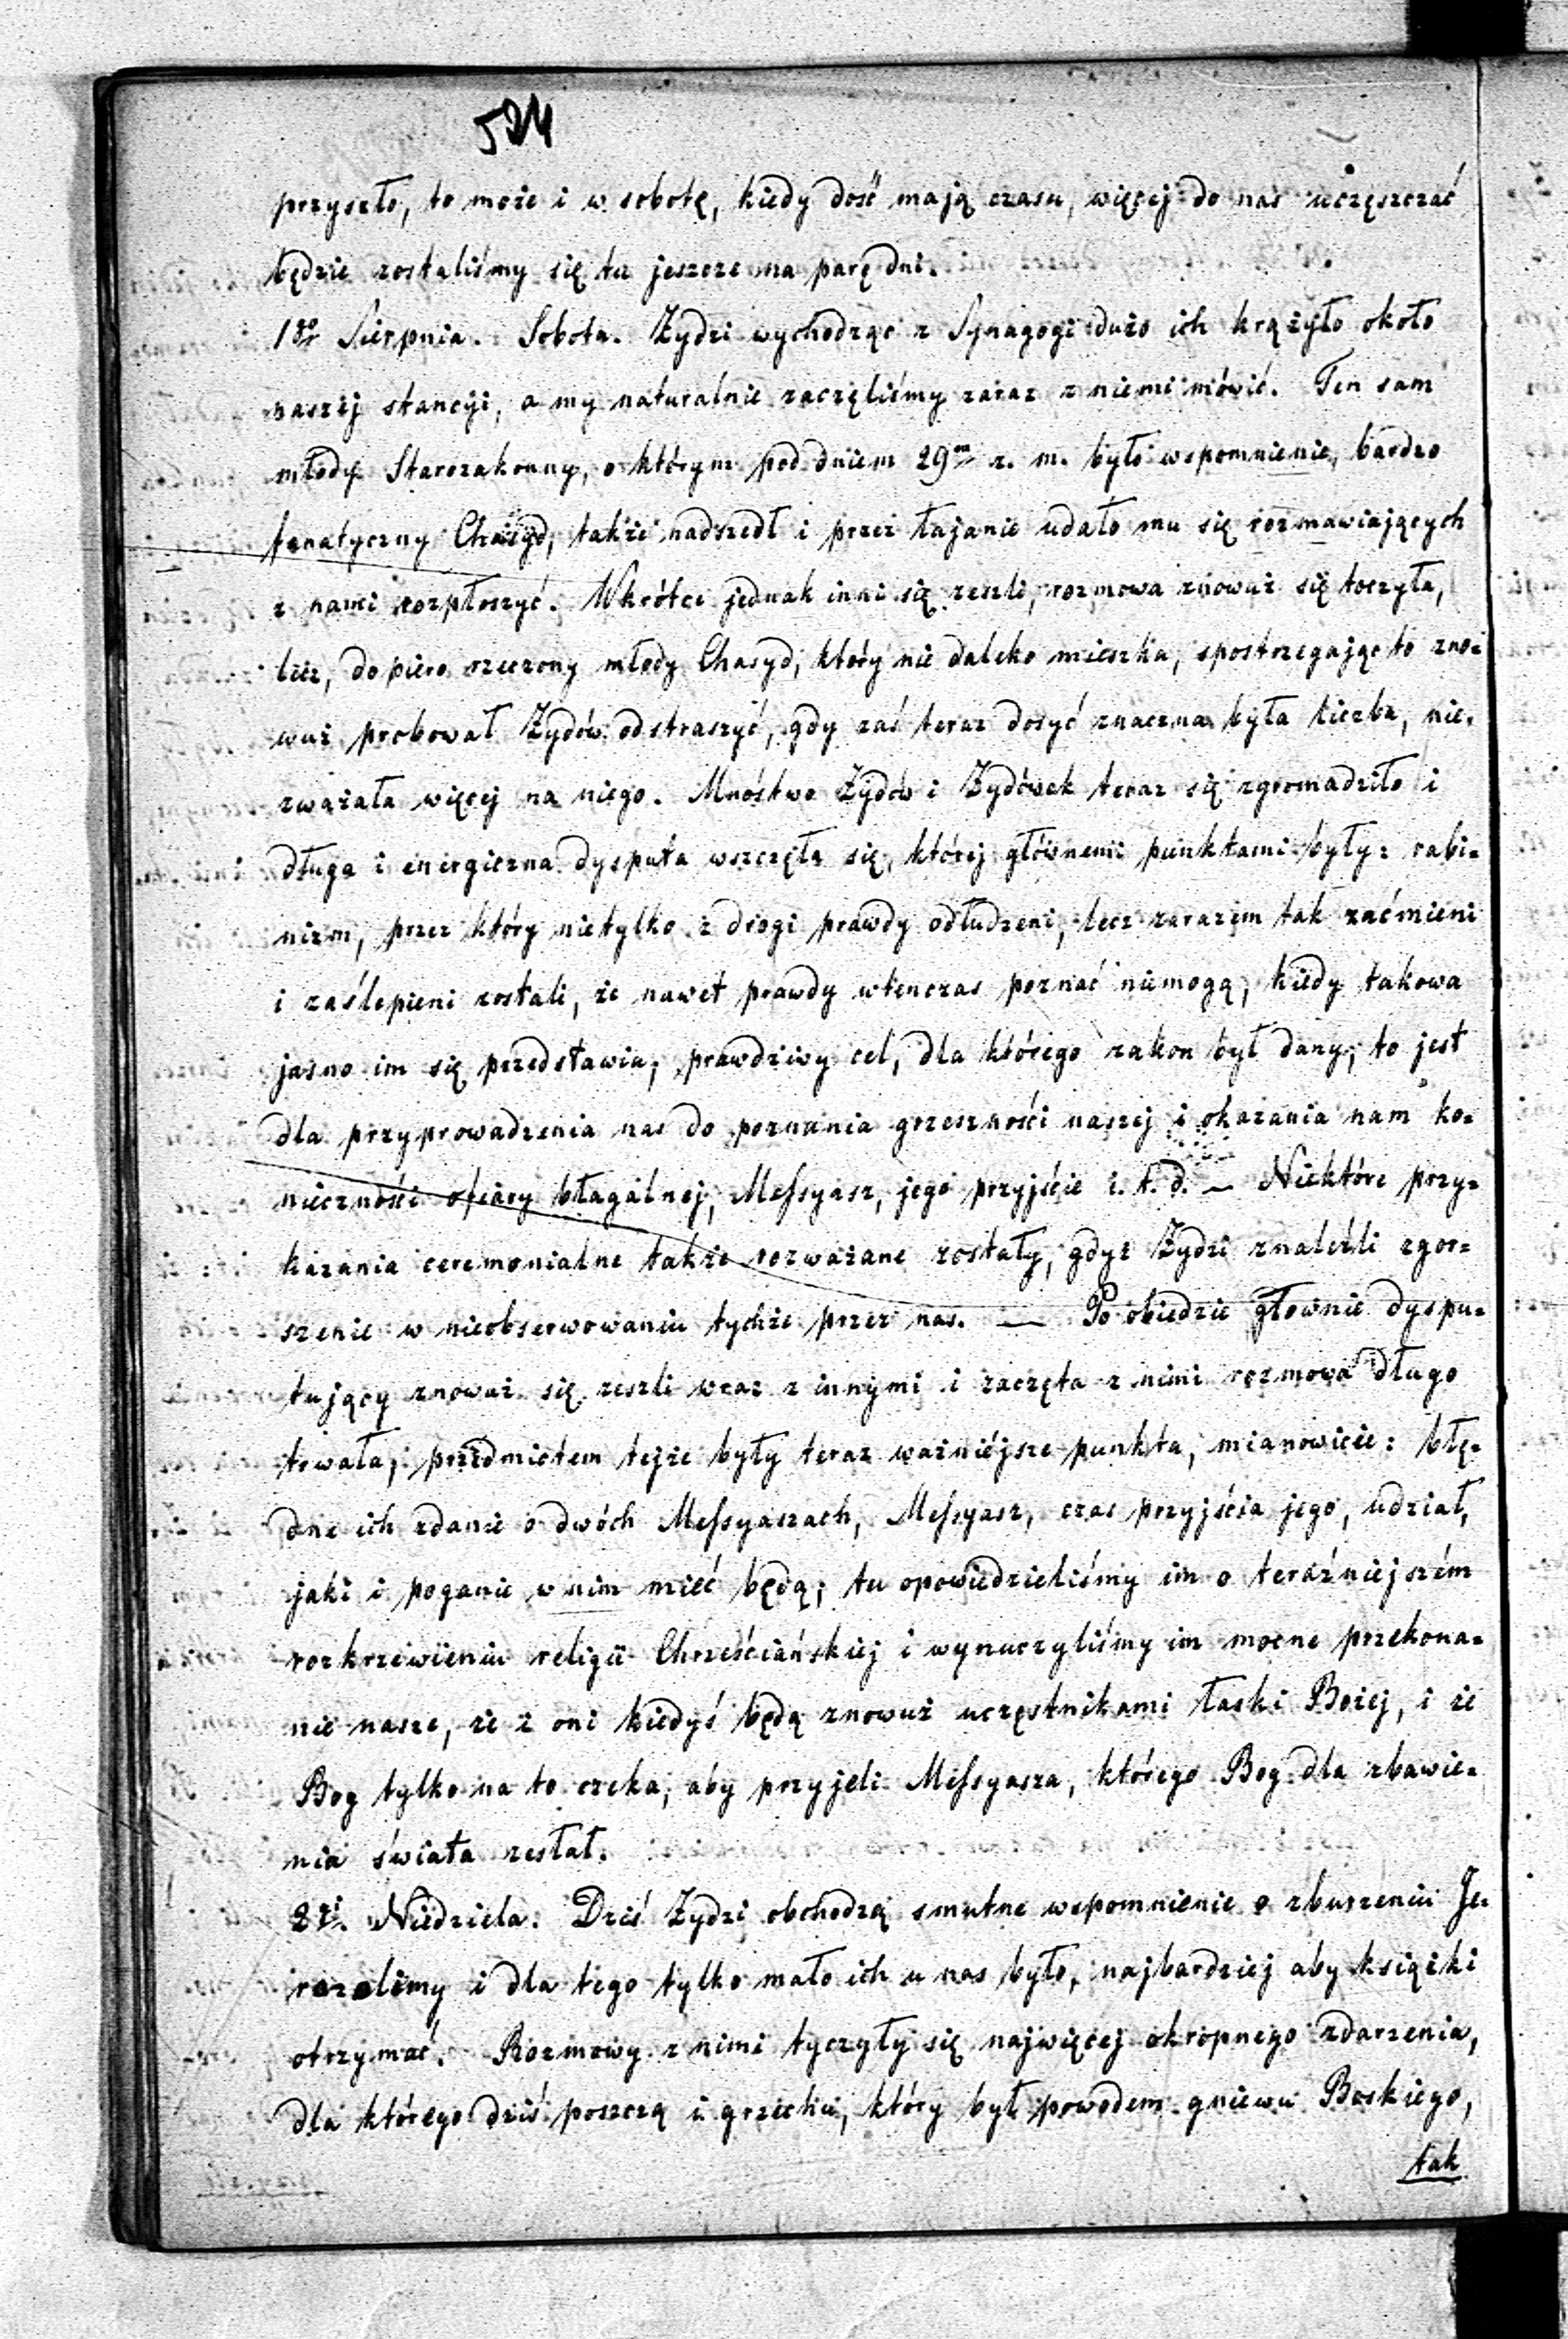 524
przyszło, to może i w sobotę, kiedy dość mają czasu, więcej do nas uczęszczać
będzie zostaliśmy się tu jeszcze na parę dni.
1go Sierpnia. Sobota. Żydzi wychodząc z Synagogi dużo ich krążyło około
naszej stancyi, a my naturalnie zaczęliśmy zaraz z niemi mówić. Ten sam
młody Starozakonny, o którym pod dniem 29m z. m. było wspomnienie, bardzo
fanatyczny Chasyd, także nadszedł i przez łajanie udało mu się rozmawiających
z nami rozpłoszyć. Wkrótce jednak inni się zeszli, rozmowa znowuż się toczyła,
lecz, dopiero rzeczony młody Chasyd, który nie daleko mieszka, spostrzegając to zno=
wuż probował Żydów odstraszyć, gdy zaś teraz dosyć znaczna była liczba, nie=
zważała więcej na niego. Mnóstwo Żydów i Żydówek teraz się zgromadziło i
długa i energiczna dysputa wszczęła się, której głównemi punktami były: rabi=
nizm, przez który nietylko z drogi prawdy odłudzeni, lecz zarazem tak zaćmieni
i zaślepieni zostali, że nawet prawdy wtenczas poznać niemogą, kiedy takowa
jasno im się przedstawia; prawdziwy cel, dla którego zakon był dany, to jest
dla przyprowadzenia nas do poznania grzeszności naszej i okazania nam ko=
nieczności ofiary błagalnej, Messyasz, jego przyjście i. t. d. — Niektóre przy=
kazania ceremonialne także rozważane zostały, gdyż Żydzi znaleźli zgor=
szenie w nieobserwowaniu tychże przez nas. — Po obiedzie głownie dyspu=
tujący znowuż się zeszli wraz z innymi i zaczęta z nimi rozmowa długo
trwała; przedmiotem tejże były teraz ważniejsze punkta, mianowicie: błę=
dne ich zdanie o dwóch Messyaszach, Messyasz, czas przyjścia jego, udział,
jaki i poganie w nim mieć będą; tu opowiedzieliśmy im o teraźniejszém
rozkrzewieniu religii Chrześciańskiej i wynuczyliśmy im mocne przekona=
nie nasze, że i oni kiedyś będą znowuż uczęstnikami łaski Bożej, i że
Bog tylko na to czeka, aby przyjeli Messyasza, którego Bog dla zbawie=
nia świata zesłał.
2gi. Niedziela. Dziś Żydzi obchodzą smutne wspomnienie o zburzeniu Je=
rozolimy i dla tego tylko mało ich u nas było, najbardziej aby książki
otrzymać. Rozmowy z nimi tyczyły się najwięcej okropnego zdarzenia,
dla którego dziś poszczą i grzechu, który był powodem gniewu Boskiego,
tak